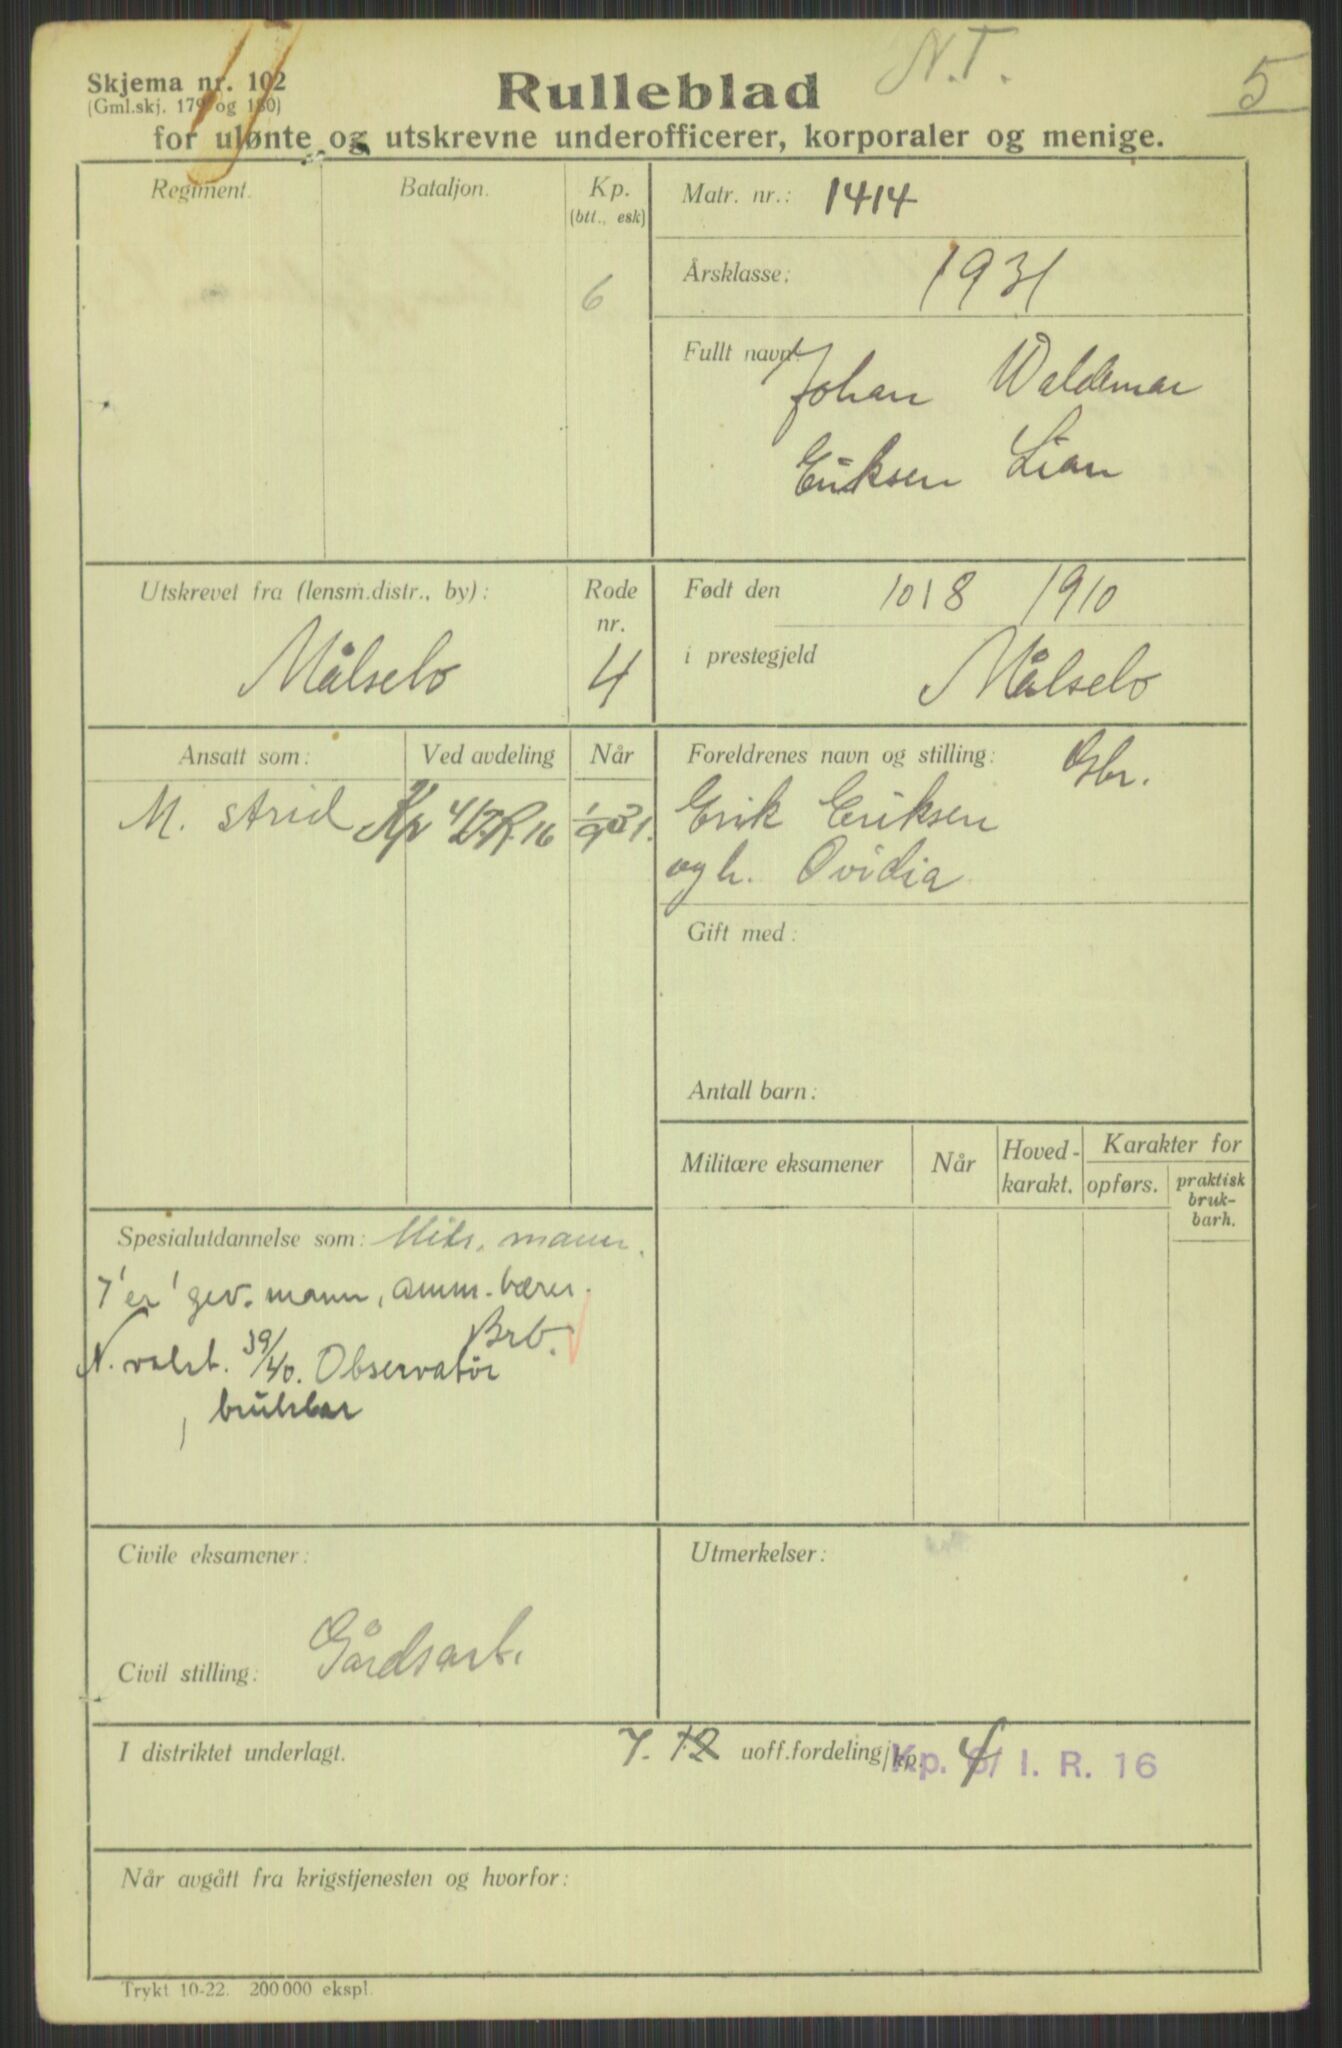 N.T.
5
Skjema nr. 102
(Gml.skj. 179 og 180)
Rulleblad
for ulønte og utskrevne underofficerer, korporaler og menige.
Regiment.
Bataljon.
Kp.
(btt., esk)
6
Matr. nr.: 1414
Årsklasse: 1931
Fullt navn: Johan Waldemar
Eriksen Lian
Utskrevet fra (lensm.distr., by):
Målselv
Rode
nr.
4
Født den 10/8 1910
i prestegjeld Målselv
Ansatt som:
Ved avdeling
Når
M. strid Kp 4/I.R. 16
Foreldrenes navn og stilling: Gbr.
Erik Eriksen
og h. Ovidia
Gift med:
Antall barn:
Militære eksamener
Når
Hoved-
karakt.
Karakter for
opførs.
praktisk
bruk-
barh.
Spesialutdannelse som: Mitr. mann.
7'er' gev. mann, amm. bærer.
Brb.
N. vakt. 39/40. Observatör
brukbar
Civile eksamener:
Civil stilling: Gårdsarb.
Utmerkelser:
I distriktet underlagt.
7. 12 uoff.fordeling/kp. Kp. 4/ I. R. 16
Når avgått fra krigstjenesten og hvorfor:
Trykt 10-22. 200 000 ekspl.